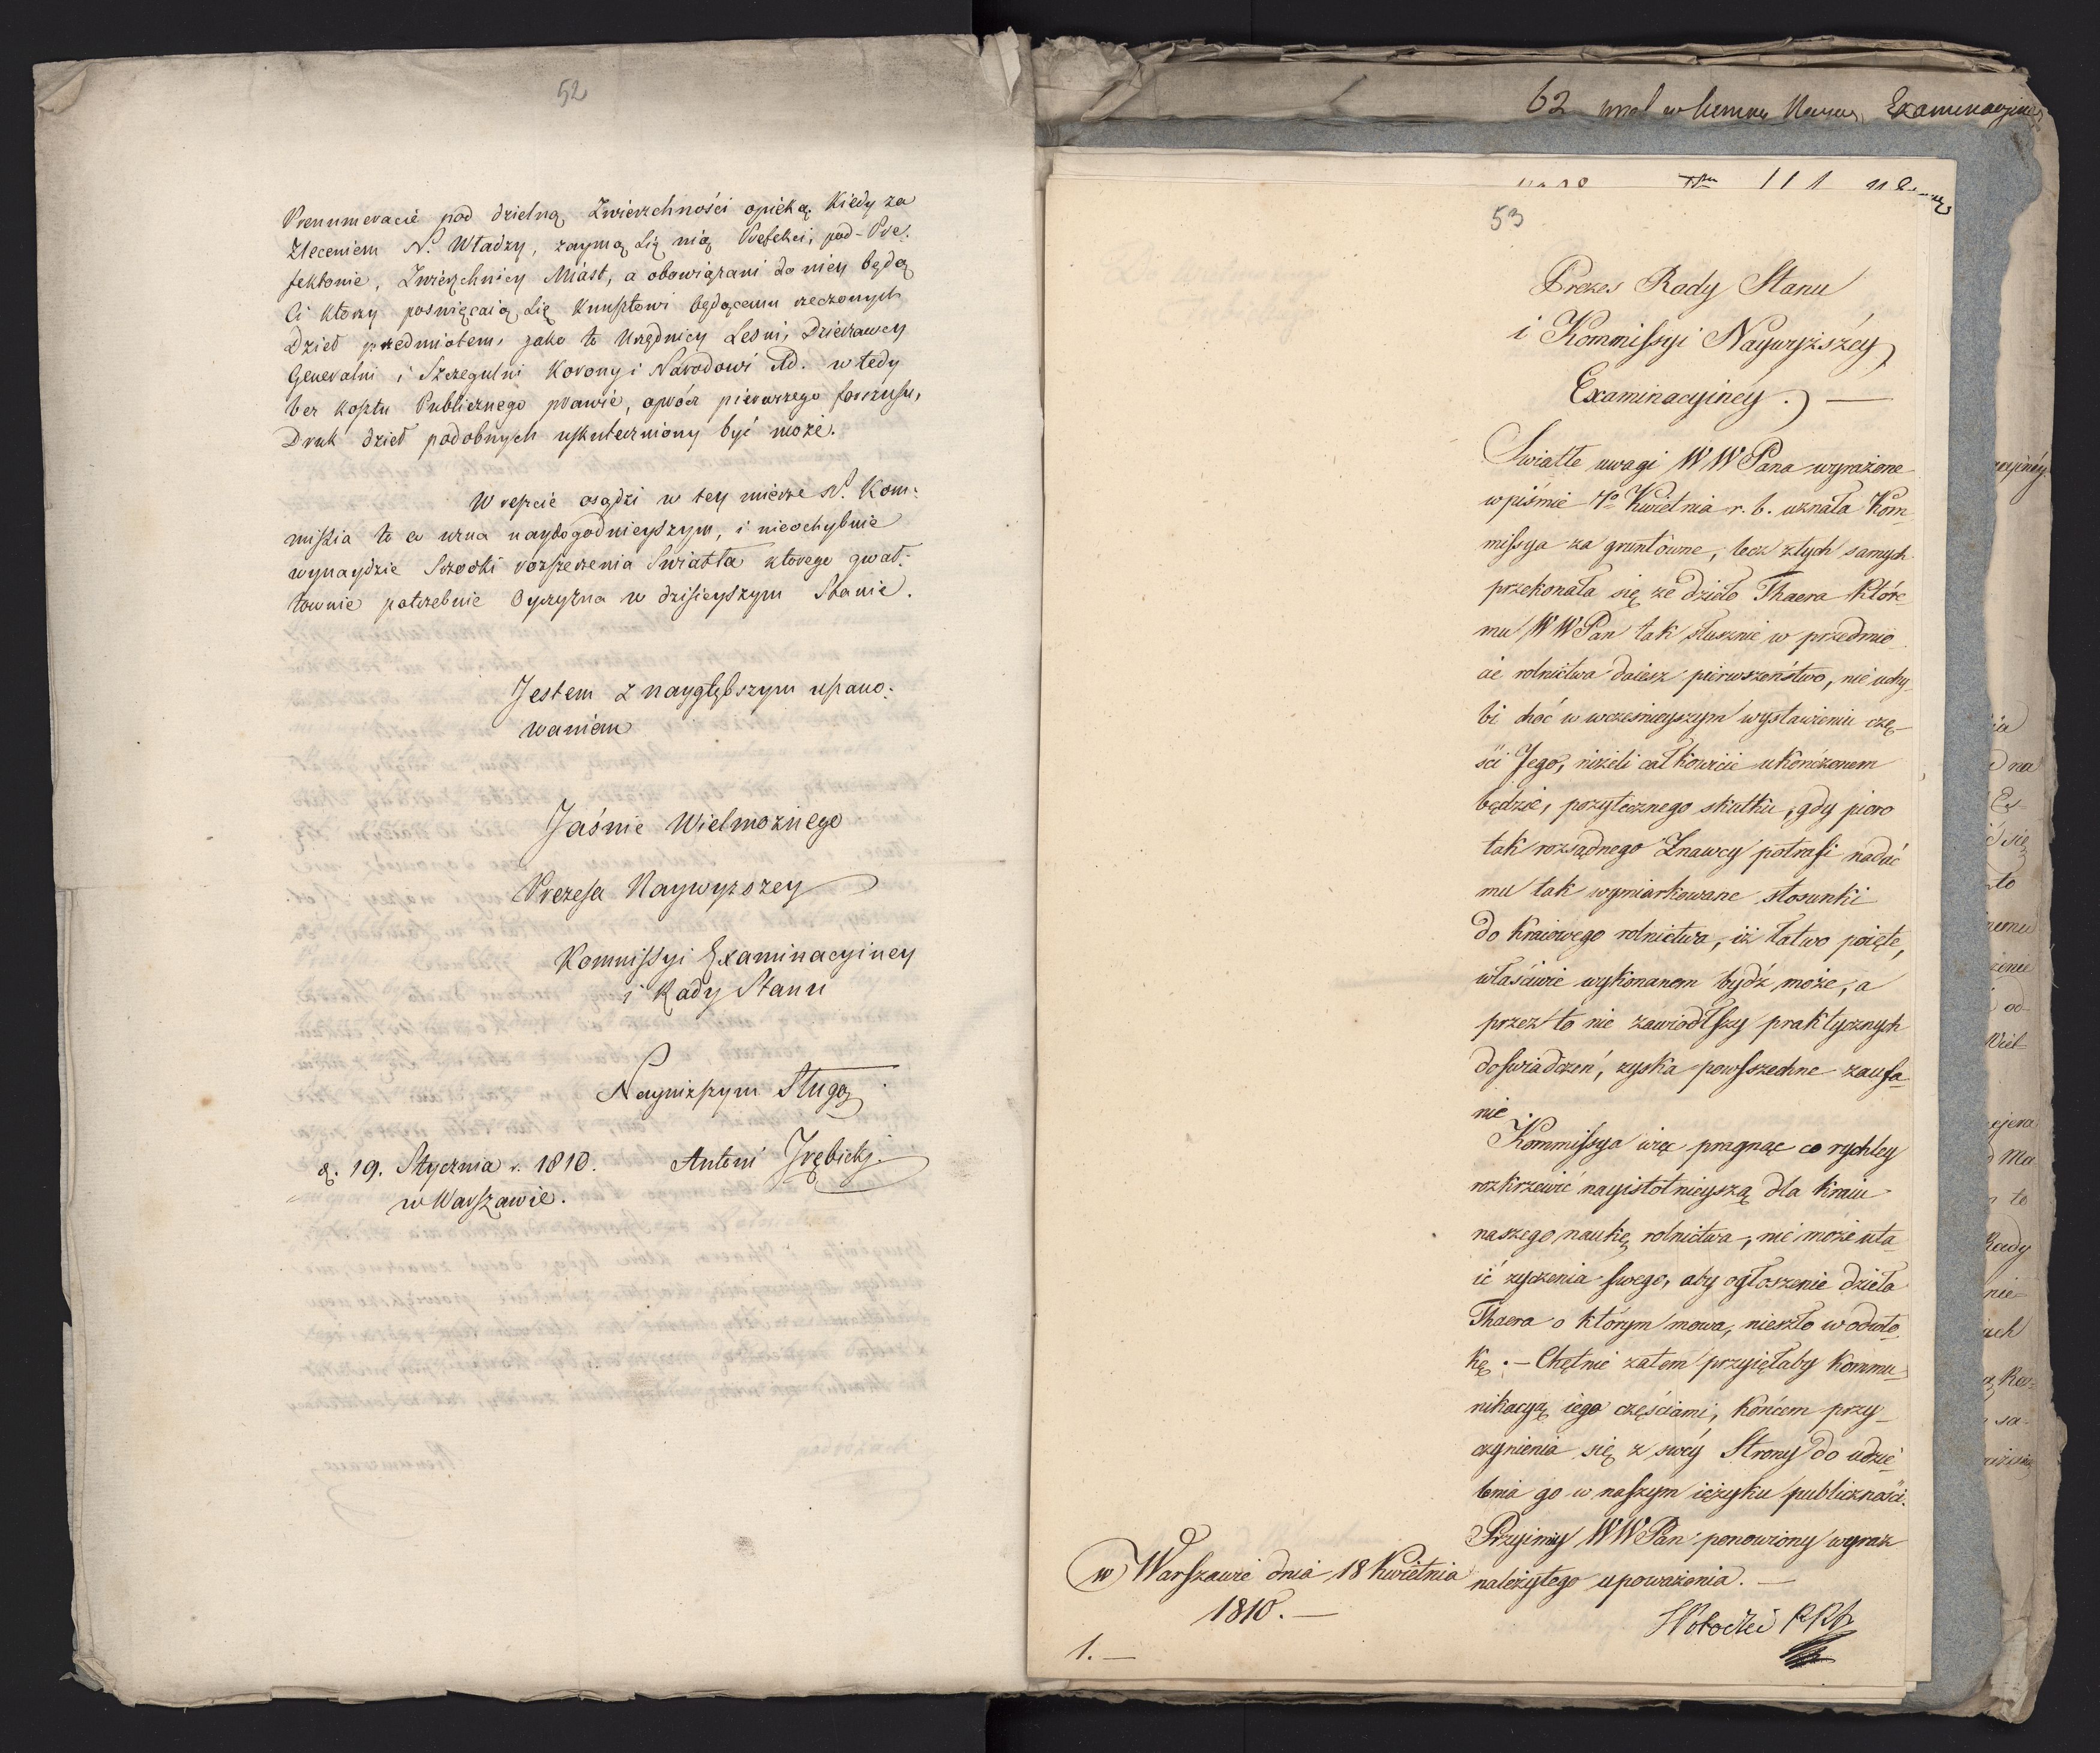 52
Prenumeracie pod dzielną Zwierzchności opieką. Kiedy za
Zleceniem N. Władzy, zaymą się nią Prefekci, pod-Pre:
fektowie, Zwierzchnicy Miast, a obowiązani do niey będą
Ci ktorzy poswięcaią się Kunsztowi będącemu rzeczonych
Dzieł przedmiotem, jako to Urzędnicy Lesni, Dzierzawcy
Generalni i Szczegulni Korony i Narodowi Rd. wtedy
bez kosztu Publicznego prawie, oprócz pierwszego forszusu,
Druk dzieł podobnych uskuteczniony być może.
Wreszcie osądzi w tey mierze N. Kom:
missia to co uzna naydogodnieyszym, i nieochybnie
wynaydzie Srzodki rozszerzenia Swiatła ktorego gwał:
townie potrzebuie Oyczyzna w dzisieyszym Stanie.
Jestem z naygłębszym uszano:
waniem
Jaśnie Wielmożnego
Prezesa Naywyzszey
Kommissyi Examinacyiney
i Rady Stanu
Nayniższym Sługą
d. 19. Stycznia r. 1810. Antoni Trębicki
w Warszawie.
62 Examinacyiney
53
Prezes Rady Stanu
i Kommissyi Naywyższéy
Examinacyinéy. —
Swiatłe uwagi WWPana wyrażone
w piśmie 7º Kwietnia r. b. uznała Kom-
missya za gruntowne, lecz z tych samych
przekonała się ze dzieło Thaera które-
mu WWPan tak słusznie w przedmio-
cie rolnictwa daiesz pierwszeństwo, nie uchy-
bi choć w wczesnieyszym wystawieniu czę-
ści Jego, niżeli całkowicie ukończonem
będzie, pożytecznego skutku, gdy pioro
tak rozsądnego Znawcy potrafi nadać
mu tak wymiarkowane stosunki
do kraiowego rolnictwa, iż łatwo poięte,
właściwie wykonanem bydź może, a
przez to nie zawiodłszy praktycznych
doswiadczeń, zyska powszechne zaufa-
nie.
Kommissya więc pragnąc co rychley
rozkrzewić nayistotnieyszą dla kraiu
naszego naukę rolnictwa, nie może uta-
ić zyczenia swego, aby ogłoszenie dzieła
Thaera o którym mowa, nieszło w odwło-
kę. — Chętnie zatem przyięłaby kommu-
nikacyą iego częściami, końcem przy-
czynienia się z swéy Strony do udzie-
lenia go w naszym ięzyku publiczności.
Przyimiy WWPan ponowiony wyraz
należytego upoważenia. —
w Warszawie dnia 18 Kwietnia
1810. —
1. —